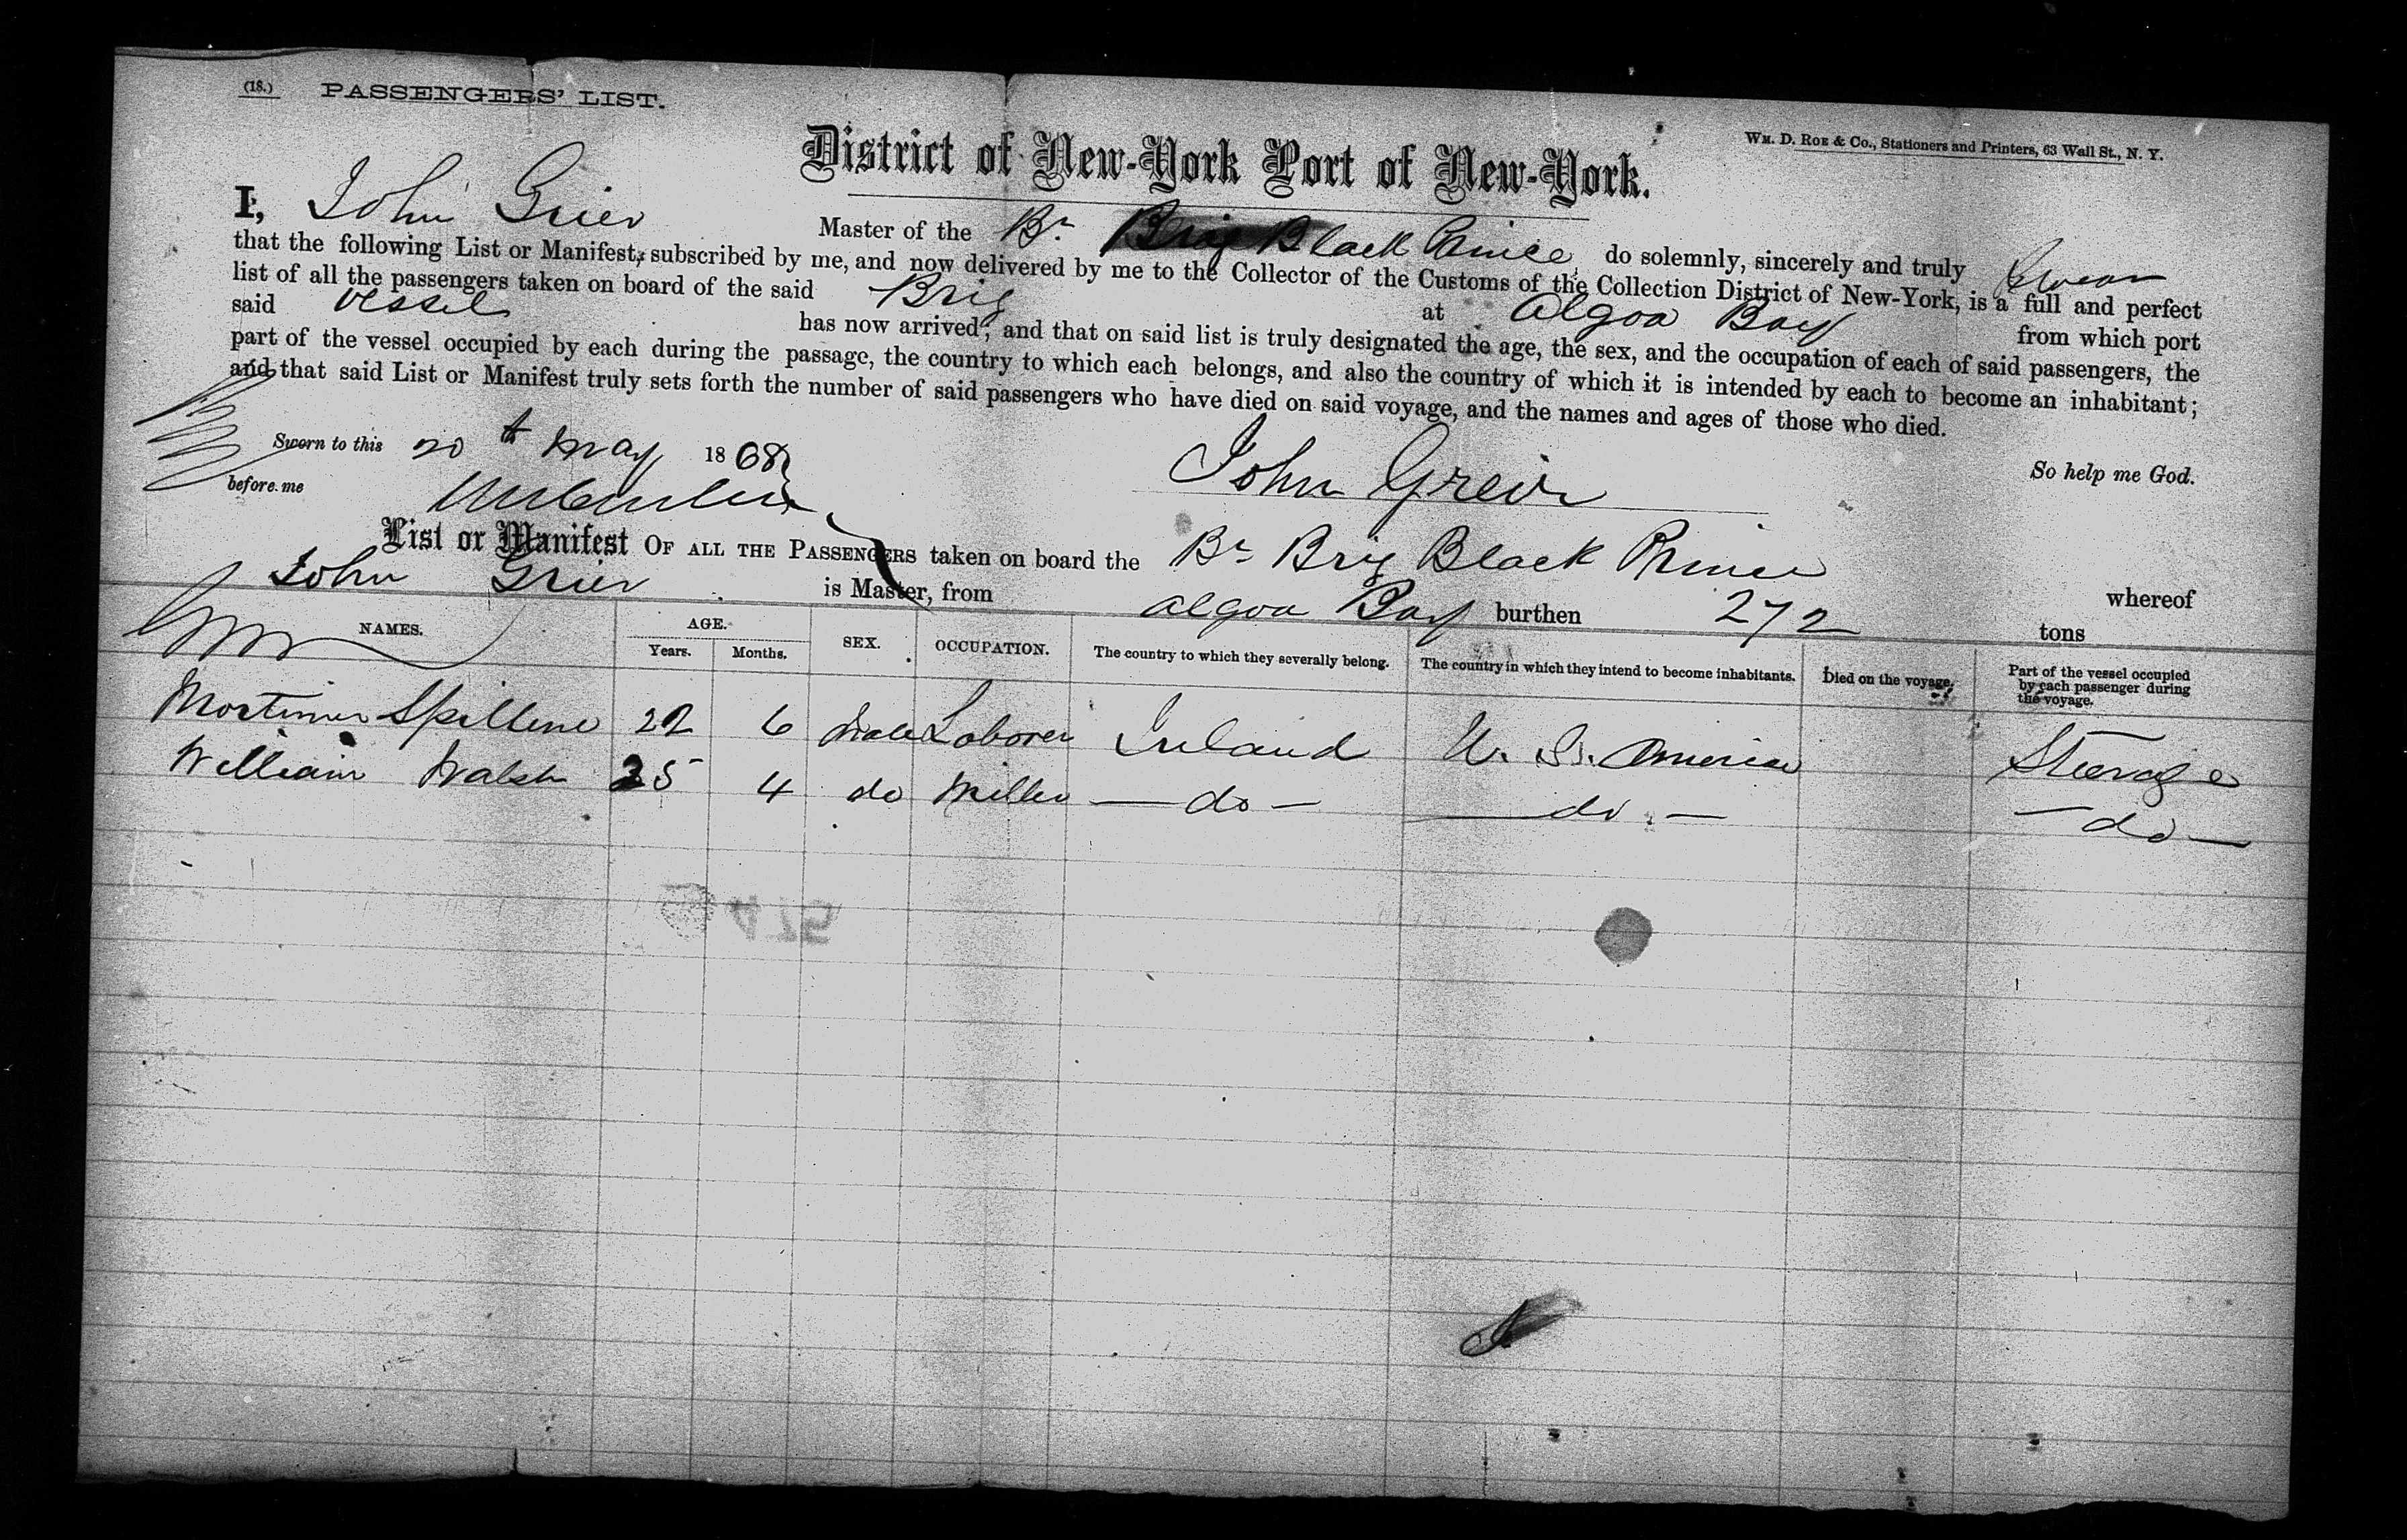 (18.) PASSENGERS' LIST.
WM. D. ROE & Co., Stationers and Printers, 63 Wall St., N. Y.
District of New-York Port of New-York.
I, John Grier Master of the Br. Brig Black Prince do solemnly, sincerely and truly Swear
that the following List or Manifest, subscribed by me, and now delivered by me to the Collector of the Customs of the Collection District of New-York, is a full and perfect
list of all the passengers taken on board of the said Brig at Algoa Bay from which port
said Vessel has now arrived; and that on said list is truly designated the age, the sex, and the occupation of each of said passengers, the
part of the vessel occupied by each during the passage, the country to which each belongs, and also the country of which it is intended by each to become an inhabitant;
and that said List or Manifest truly sets forth the number of said passengers who have died on said voyage, and the names and ages of those who died.
Sworn to this 20th May 1868 So help me God.
before me John Greir
List or Manifest OF ALL THE PASSENGERS taken on board the Br Brig Black Prince whereof
John Grier is Master, from Algoa Bay burthen 272 tons
NAMES. AGE. Years. Months. SEX. OCCUPATION. The country to which they severally belong. The country in which they intend to become inhabitants. Died on the voyage. Part of the vessel occupied by each passenger during the voyage.
Mortimer Spillene 22 6 Male Laborer Ireland U. S. America Steerage
William Walsh 25 4 do Miller do do do
475